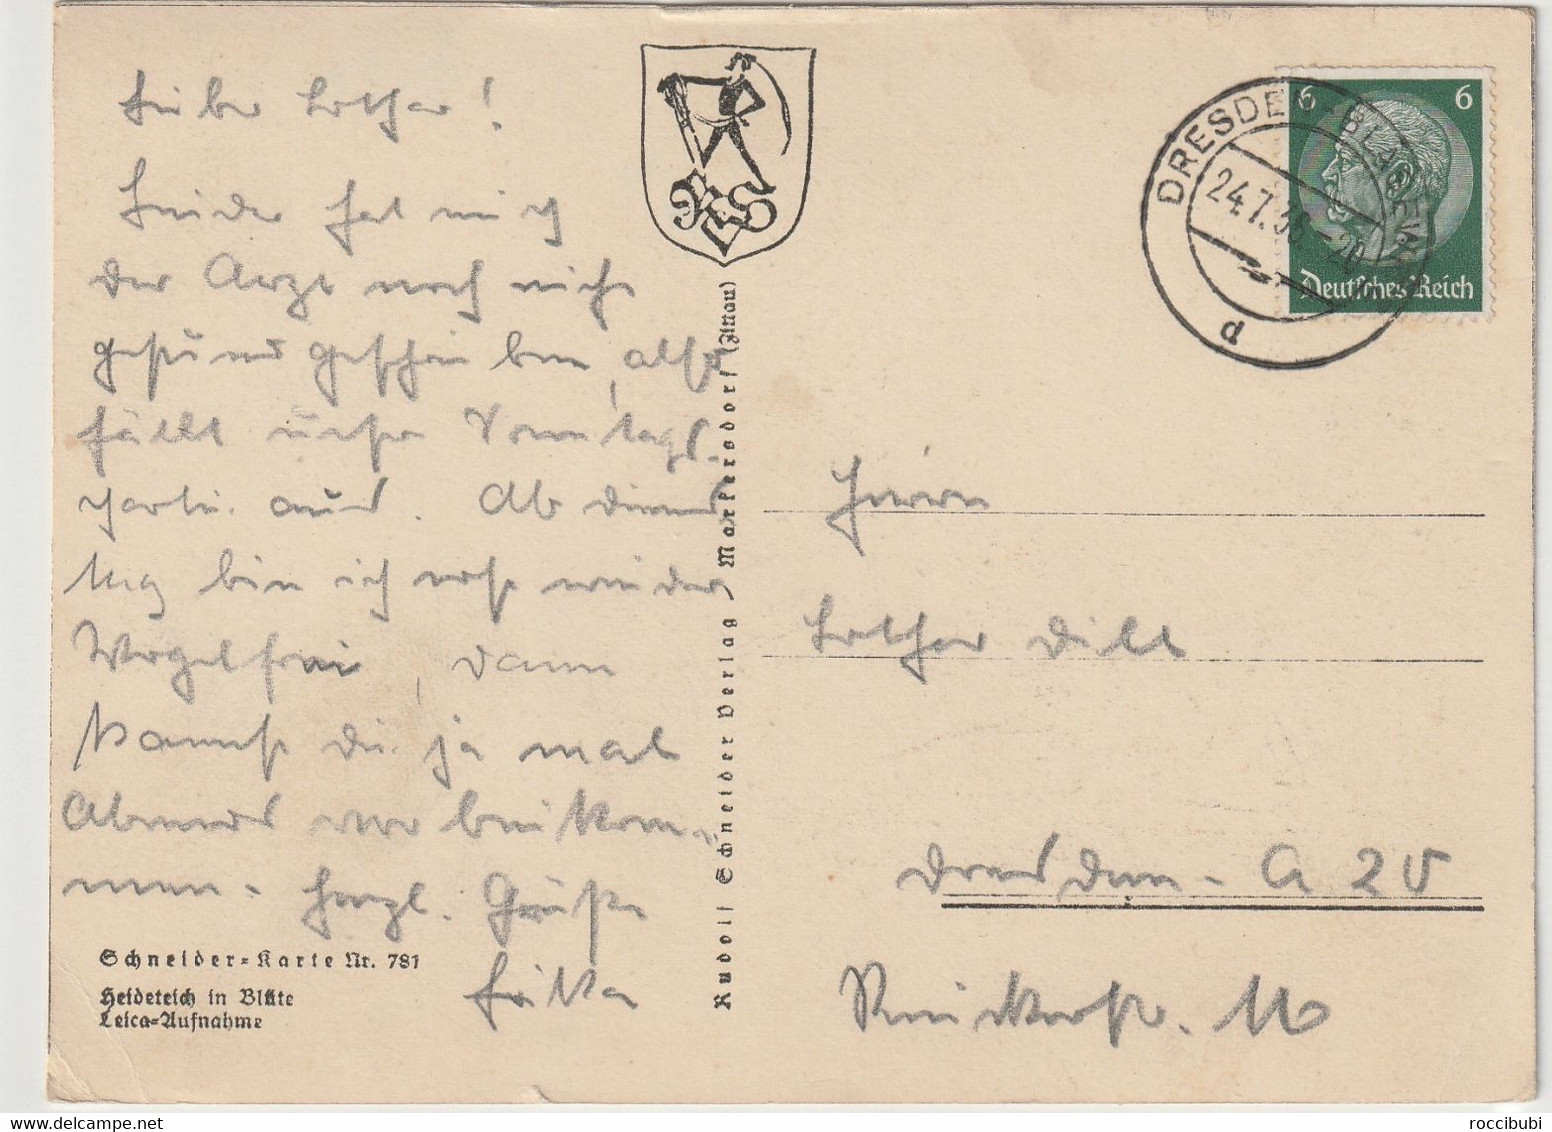 Lieber Lothar!
Leider hat mich
der Arzt noch nicht
gesund geschrieben, also
fällt unsre Sonntags-
partie aus. Ab Diens
tag bin ich erst wieder
Vogelfrei, dann
kannst Du ja mal
Abends vorbeikom-
men. Herzl. Grüße
Schneider-Karte Nr. 781
Heideteich in Blüte
Leica-Aufnahme
Rudolf Schneider Verlag / Markersdorf (Zittau)
RSV
DRESDEN BLASEWITZ
24.7.36-20
d
6 6
Deutsches Reich
Herrn
Lothar Dill
Dresden-A 20
roccibubi